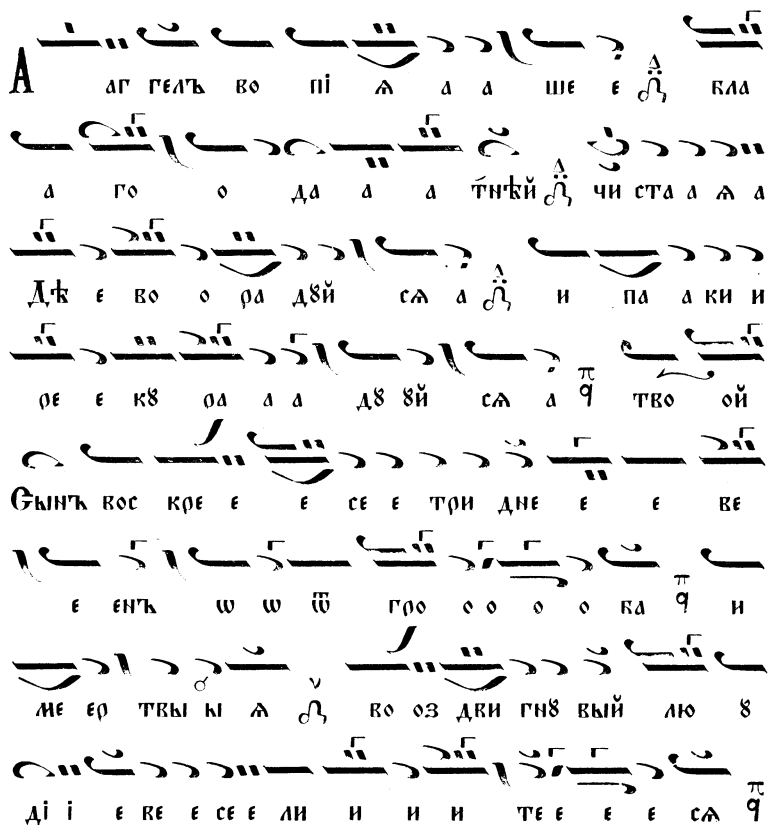 А аг гелъ во пі ѧ а а ше е бла
а го о да а а т҃нѣй чи ста а ѧ а
Дѣ е во о ра дꙋй сѧ а и па а ки и
ре е кꙋ ра а а дꙋ ꙋй сѧ а тво ой
Сынъ вос кре е е се е три дне е е ве
е енъ ѡ ѡ ѿ гро о о о о ба и
ме ер твы ы ѧ во оз дви гнꙋ вый лю ꙋ
ді і е ве е се е ли и и и те е е е сѧ